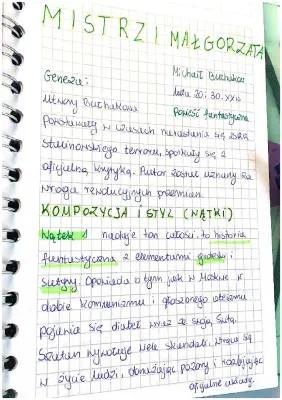 MISTRZ I MAŁGORZATA
Geneza:
Michaił Bułhakow
lata 20 i 30. XX w
Powieść fantastyczna
Utwory Bułhakowa
powstawały w czasach narastania się
stalinowskiego terroru, spotkały się z
oficjalną krytyką. Autor został uznany za
wroga rewolucyjnych przemian.
KOMPOZYCJA I STYL (WĄTKI)
Wątek 1 nadaje ton całości, to historia
fantastyczna z elementami groteski i
satyry. Opowiada o tym jak w Moskwie w
dobie komunizmu i głoszonego ateizmu
pojawia się diabeł wraz ze swoją świtą.
Szatan wywołuje wiele skandali, wtrąca się
w życie ludzi, obnażając pozory i rozbijając
oficjalne układy.